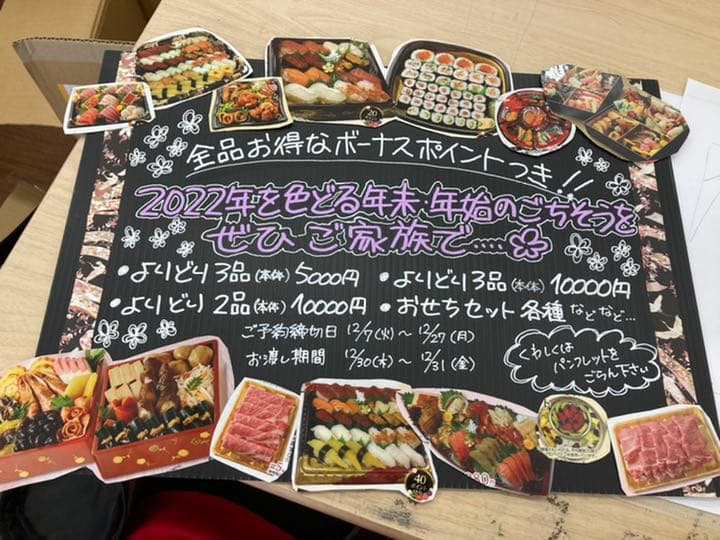 全品お得なボーナスポイントつき!!
2022年を色どる年末・年始のごちそうを
ぜひご家族で‥‥
・よりどり3品(本体)5000円
・よりどり3品(本体)10000円
・よりどり2品(本体)10000円
・おせちセット各種などなど…
ご予約締切日 12/7(火)～12/27(月)
お渡し期間 12/30(木)～12/31(金)
くわしくは
パンフレットを
ごらん下さい
20
40
ポイント